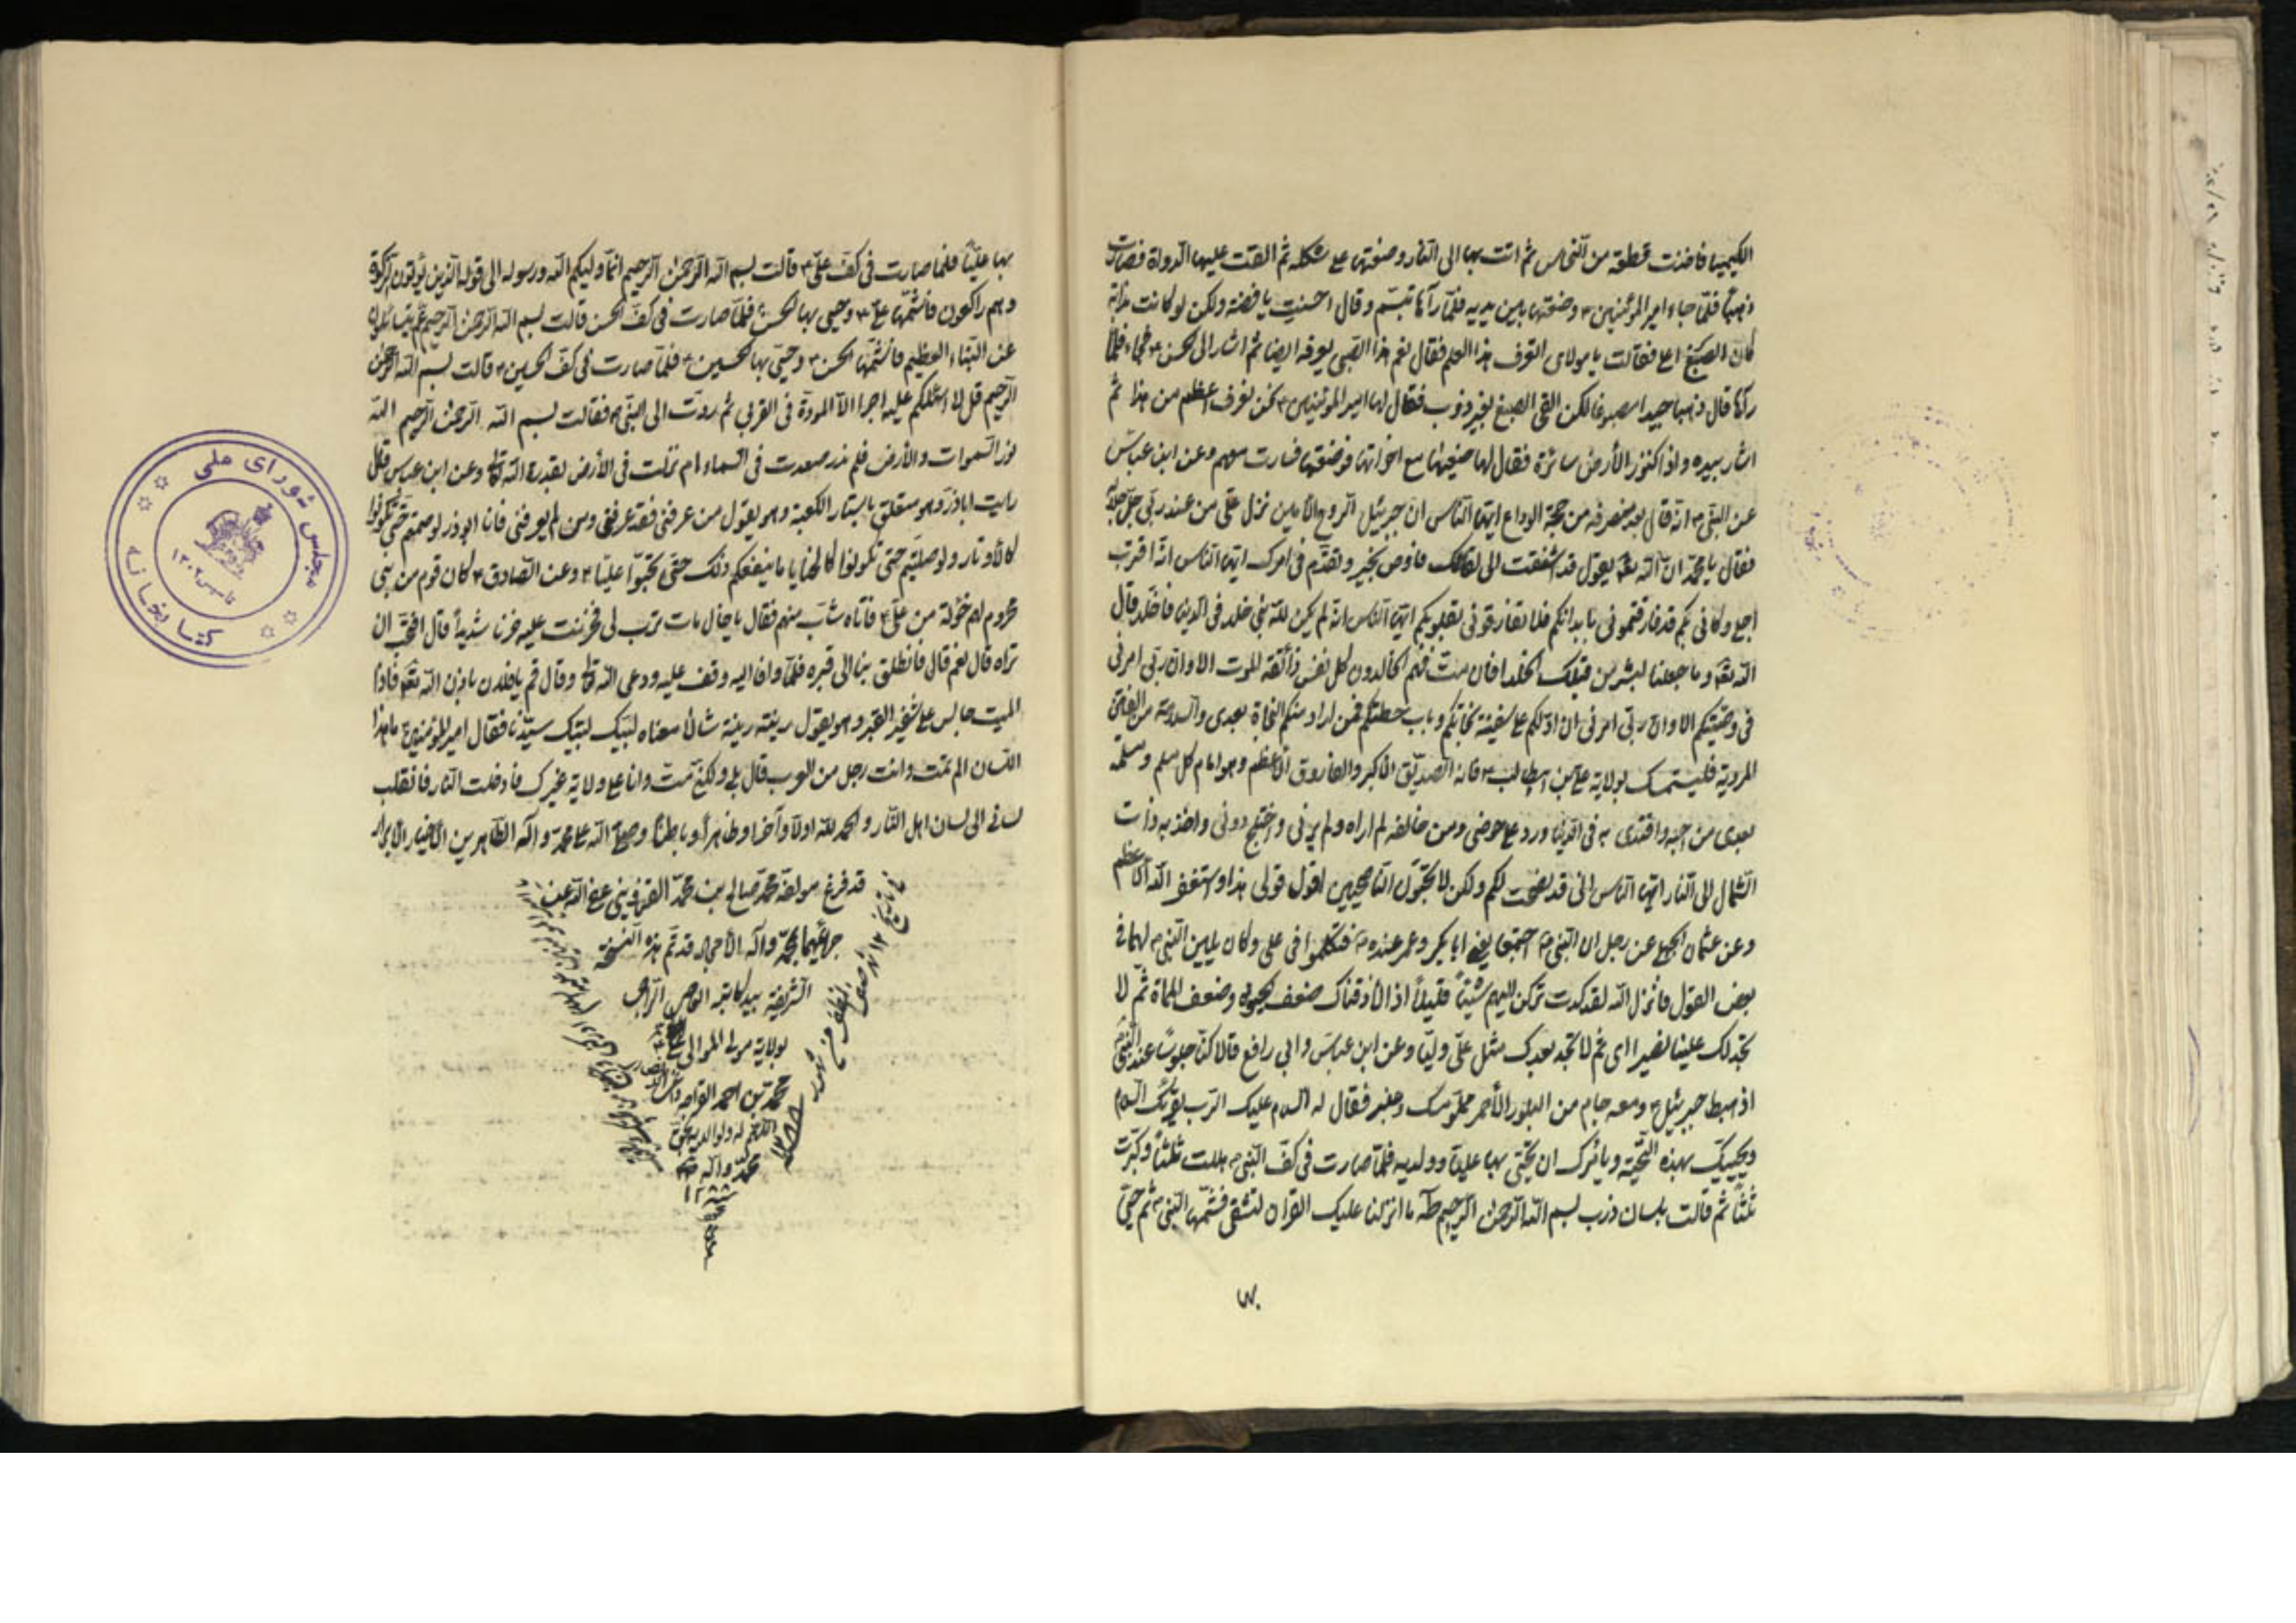 الكيميا فاخذت قطعة من النحاس ثم اتت بها الى النار وصنعتها على شكله ثم القت عليها الدواة فصارت
ذهبا فلما جاء امير المؤمنين ع وضعتها بين يديه فلما رآها تبسم وقال احسنت يا فضة ولكن لو كانت مذابة
كان الصبغ اعلى فقالت يا مولاى اتعرف هذا العلم فقال نعم هذا الصبى يعرفه ايضا ثم اشار الى الحسن ع فجاء فلما
رآها قال ذهبا جيدا مصبوغا لكن القى الصبغ بغير ذوب فقال لها امير المؤمنين ع نحن نعرف اعظم من هذا ثم
اشار بيده واذا كنوز الأرض سائرة فقال لها ضعيها مع اخواتها فوضعتها فسارت معهم وعن ابن عباس
عن النبى ص انه قال بعد منصرفه من حجة الوداع ايها الناس ان جبرئيل الروح الأمين نزل على من عند ربى جل جلاله
فقال يا محمد ان الله تعالى يقول قد اشتقت الى لقائك فاوص بخير وتقدم فى امرك ايها الناس انه اقترب
اجلى وكانى بكم قد فارقتمونى بابدانكم فلا تفارقونى بقلوبكم ايها الناس انه لم يكن لله نبى خلد فى الدنيا فاخلد قال
الله تعالى وما جعلنا لبشر من قبلك الخلد افان مت فهم الخالدون كل نفس ذائقة الموت الا وان ربى امرنى
فى وصيتكم الا وان ربى امرنى ان ادلكم على سفينة نجاتكم وباب حطتكم فمن اراد منكم النجاة بعدى والسلامة من الفتن
المردية فليتمسك بولاية على بن ابيطالب ع فانه الصديق الاكبر والفاروق الاعظم وهو امام كل مسلم ومسلمة
بعدى من احبه واقتدى به فى الدنيا ورد على حوضى ومن خالفه لم اراه ولم يرنى واختلج دونى واخذ به ذات
الشمال الى النار ايها الناس انى قد نصحت لكم ولكن لا تحبون الناصحين اقول قولى هذا واستغفر الله الاعظم
وعن عثمان عن رجل ان النبى ص اجتمعا يعنى ابا بكر وعمر عنده فتكلموا فى على وكان يلين النبى ص لهما فى
بعض القول فانزل الله لقد كدت تركن اليهم شيئا قليلا اذا لأذقناك ضعف الحيوة وضعف المماة ثم لا
تجد لك علينا نصيرا اى ثم لا تجد بعدك مثل على وليا وعن ابن عباس وابى رافع قالا كنا جلوسا عند النبى
اذ هبط جبرئيل ع ومعه جام من البلور الأحمر مملو مسك وعنبر فقال له السلام عليك الرب يقرئك السلام
ويحييك بهذه التحية ويامرك ان تحيى بها عليا وولديه فلما صارت فى كف النبى ص هللت ثلثا وكبرت
ثلثا ثم قالت بلسان ذرب بسم الله الرحمن الرحيم طه ما انزلنا عليك القران لتشقى فشمها النبى ص ثم حيى
بها عليا فلما صارت فى كف على ع قالت بسم الله الرحمن الرحيم انما وليكم الله ورسوله الى قوله الذين يؤتون الزكوة
وهم راكعون فاشتمها على ع وحيى بها الحسن فلما صارت فى كف الحسن قالت بسم الله الرحمن الرحيم عم يتسائلون
عن النباء العظيم فاشتمها الحسن ع وحيى بها الحسين ع فلما صارت فى كف الحسين ع قالت بسم الله الرحمن
الرحيم قل لا اسئلكم عليه اجرا الا المودة فى القربى ثم ردت الى النبى ص فقالت بسم الله الرحمن الرحيم الله
نور السموات والأرض فلم ندر صعدت فى السماء ام نزلت فى الأرض بقدرة الله تعالى وعن ابن عباس قال
رايت اباذر وهو متعلق باستار الكعبة وهو يقول من عرفنى فقد عرفنى ومن لم يعرفنى فانا ابوذر لو صمتم حتى تكونوا
كالأوتار ولو صليتم حتى تكونوا كالحنايا ما ينفعكم ذلك حتى تحبوا عليا ع وعن الصادق ع كان قوم من بنى
مخزوم لهم خؤلة من على ع فاتاه شاب منهم فقال يا خال مات ترب لى فحزنت عليه حزنا شديدا قال افتحب ان
تراه قال نعم قال فانطلق بنا الى قبره فلما وافا اليه وقف عليه ودعى الله تعالى وقال قم يا فلان باذن الله تعالى فاذا
الميت جالس على شفير القبر وهو يقول رينه رينه شالا معناه لبيك لبيك سيدنا فقال امير المؤمنين ع ما هذا
اللسان الم تمت وانت رجل من العرب قال بلى ولكنى مت وانا على ولاية غيرك فادخلت النار فانقلب
لسانى الى لسان اهل النار والحمد لله اولا وآخرا وظاهرا وباطنا وصلى الله على محمد وآله الطاهرين الأخيار الأبرار
قد فرغ مولفه محمد صالح بن محمد القزوينى عفى الله عن
جرائمهما بمحمد وآله الأمجاد قد تم هذه النسخة
الشريفة بيد كاتبه العاصى الراجى
بولاية مولى الموالى
محمد تقى بن احمد
اللهم اغفر له ولوالديه بحق
محمد وآله
١٢٨٨
مجلس شوراى ملى
كتابخانه
تاسيس ١٣٠٢
بها